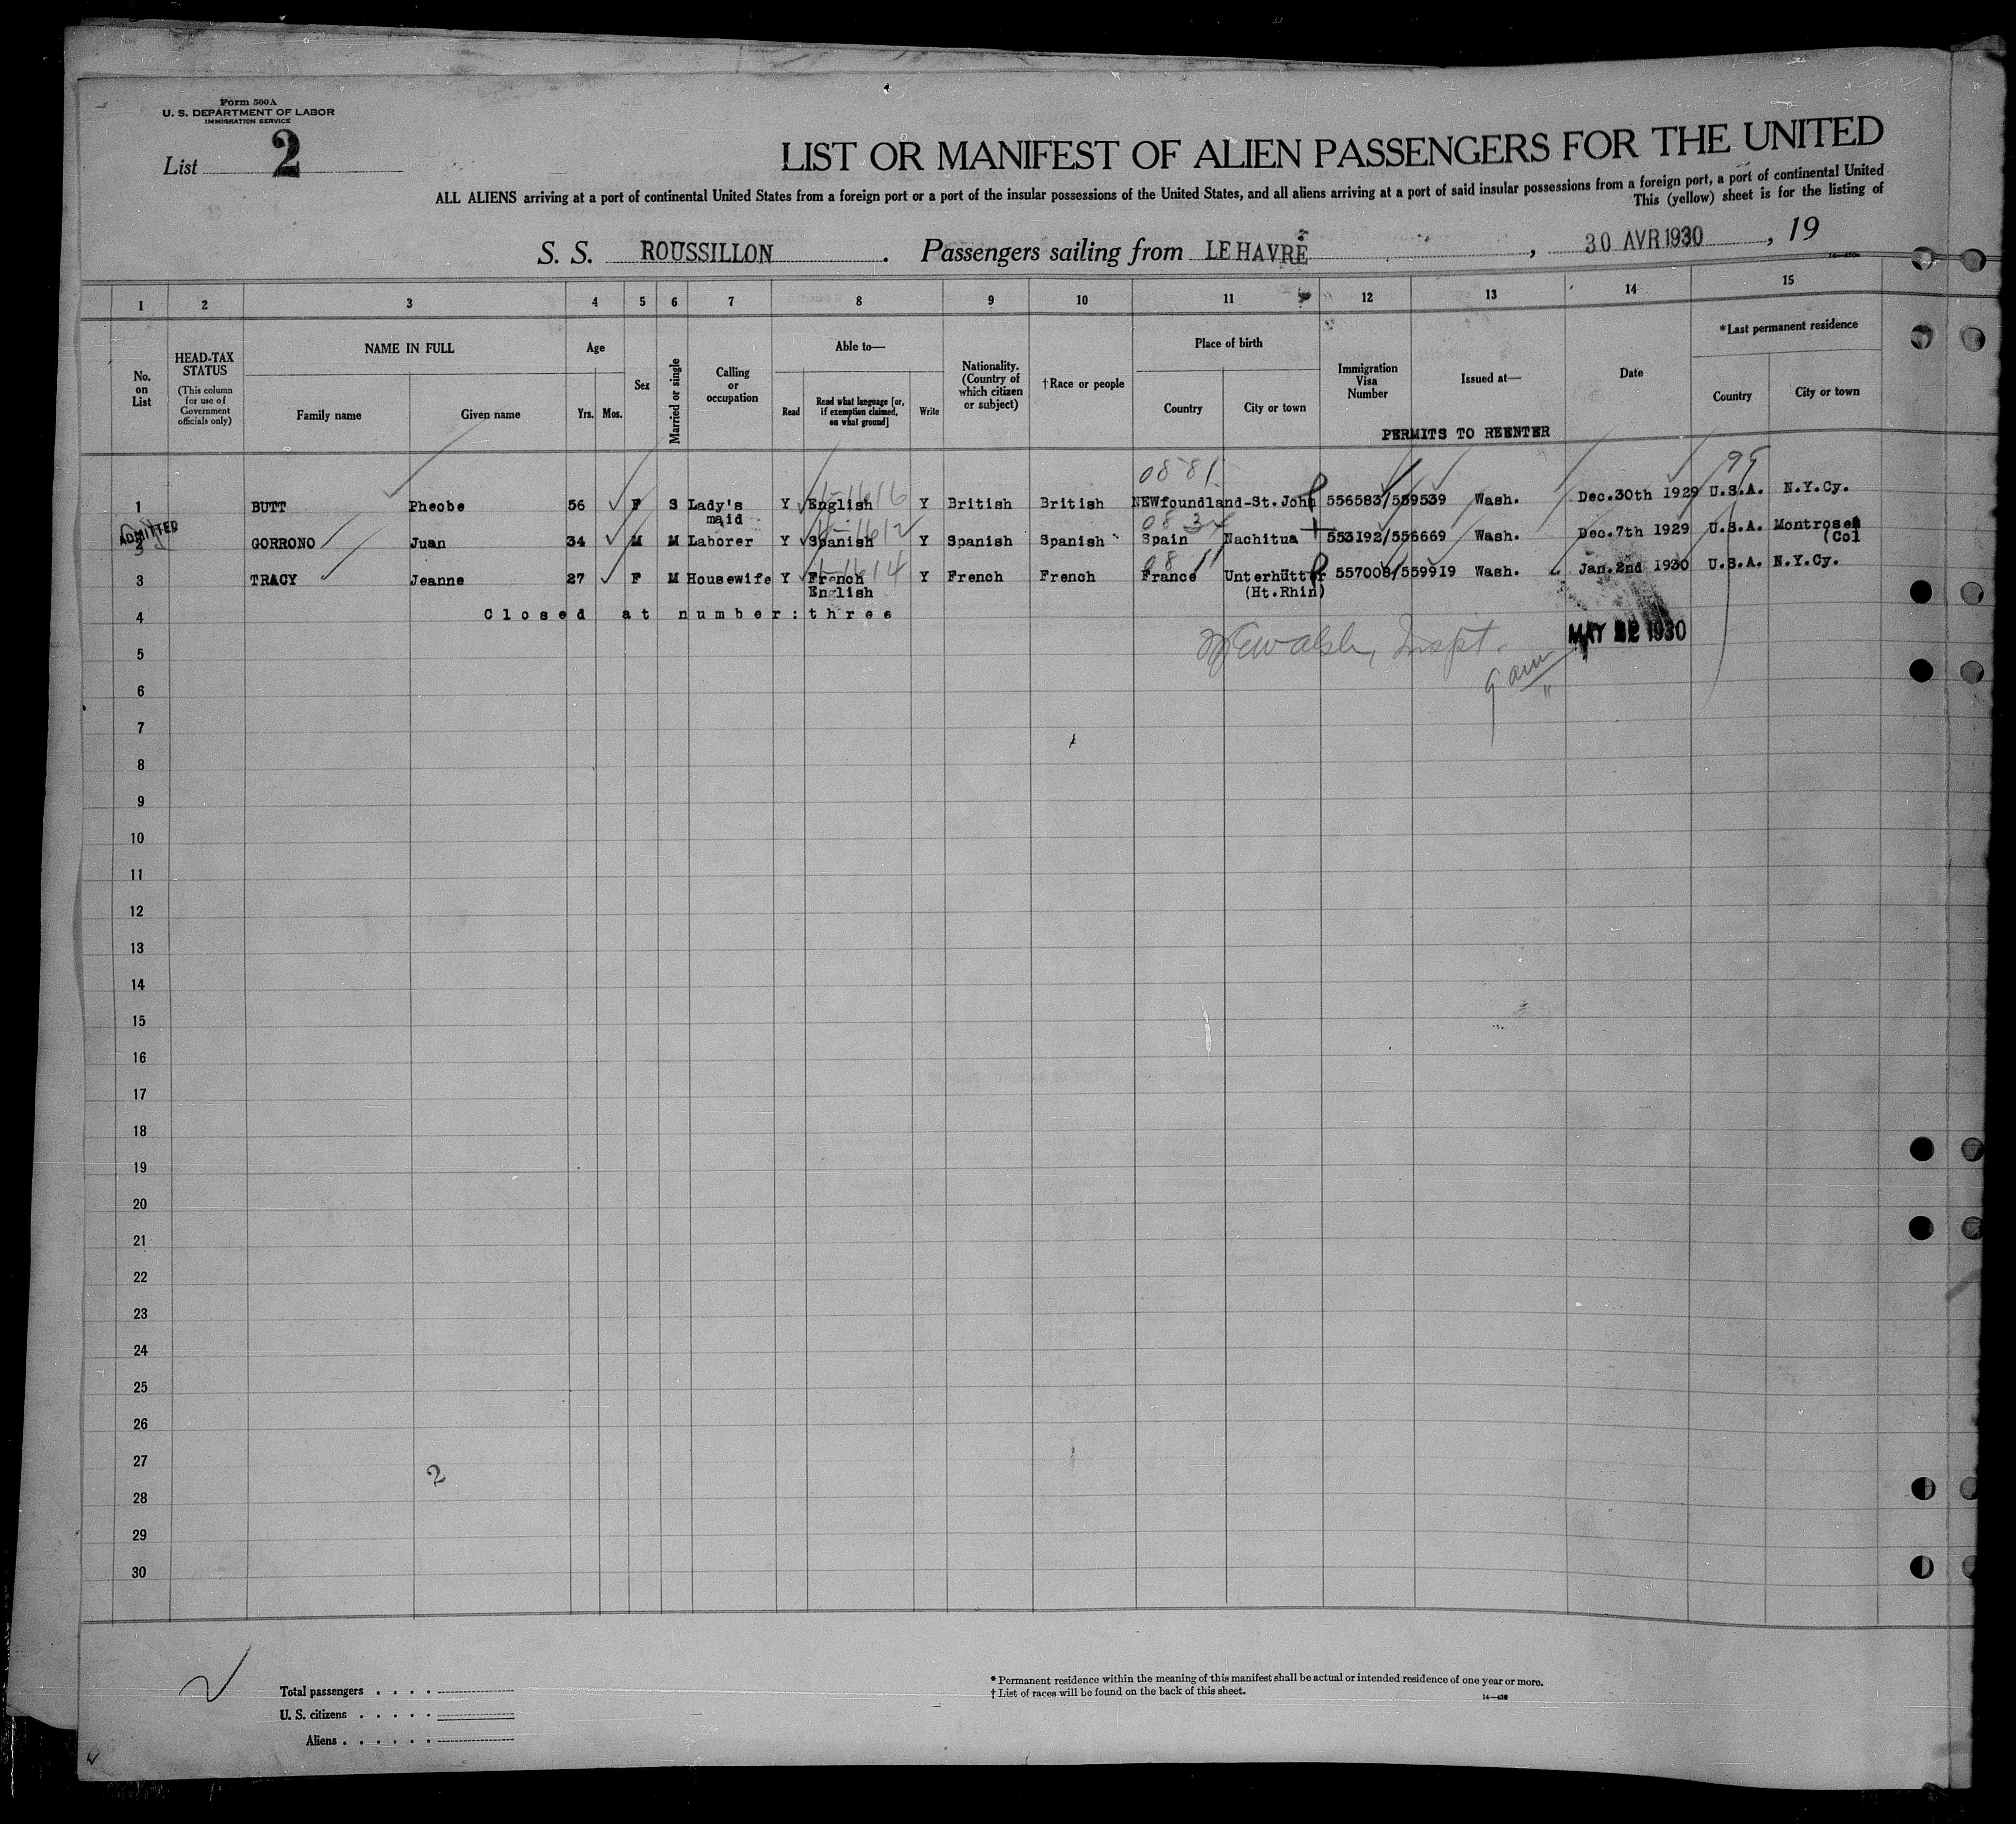 Form 500A
U. S. DEPARTMENT OF LABOR
IMMIGRATION SERVICE
List 2
LIST OR MANIFEST OF ALIEN PASSENGERS FOR THE UNITED
ALL ALIENS arriving at a port of continental United States from a foreign port or a port of the insular possessions of the United States, and all aliens arriving at a port of said insular possessions from a foreign port, a port of continental United
This (yellow) sheet is for the listing of
S. S. ROUSSILLON . Passengers sailing from LE HAVRE , 30 AVR 1930 , 19
1 2 3 4 5 6 7 8 9 10 11 12 13 14 15
No. on List
HEAD-TAX STATUS (This column for use of Government officials only)
NAME IN FULL
Family name Given name
Age
Yrs. Mos.
Sex
Married or single
Calling or occupation
Able to—
Read Read what language [or, if exemption claimed, on what ground] Write
Nationality. (Country of which citizen or subject)
†Race or people
Place of birth
Country City or town
Immigration Visa Number
Issued at—
Date
*Last permanent residence
Country City or town
PERMITS TO REENTER
0881 99
1 BUTT Pheobe 56 F S Lady's maid Y English Y British British NEWfoundland-St.John 556583/559539 Wash. Dec.30th 1929 U.S.A. N.Y.Cy.
ADMITTED
2 GORRONO Juan 34 M M Laborer Y Spanish Y Spanish Spanish Spain Nachitua 553192/556669 Wash. Dec.7th 1929 U.S.A. Montrose (Col
3 TRACY Jeanne 27 F M Housewife Y French English Y French French France Unterhütter (Ht.Rhin) 557008/559919 Wash. Jan.2nd 1930 U.S.A. N.Y.Cy.
4 Closed at number: three
MAY 1930
5 Inspt.
6
7
8
9
10
11
12
13
14
15
16
17
18
19
20
21
22
23
24
25
26
27 2
28
29
30
Total passengers . . . .
U. S. citizens . . . . .
Aliens . . . . . .
* Permanent residence within the meaning of this manifest shall be actual or intended residence of one year or more.
† List of races will be found on the back of this sheet.
14—430